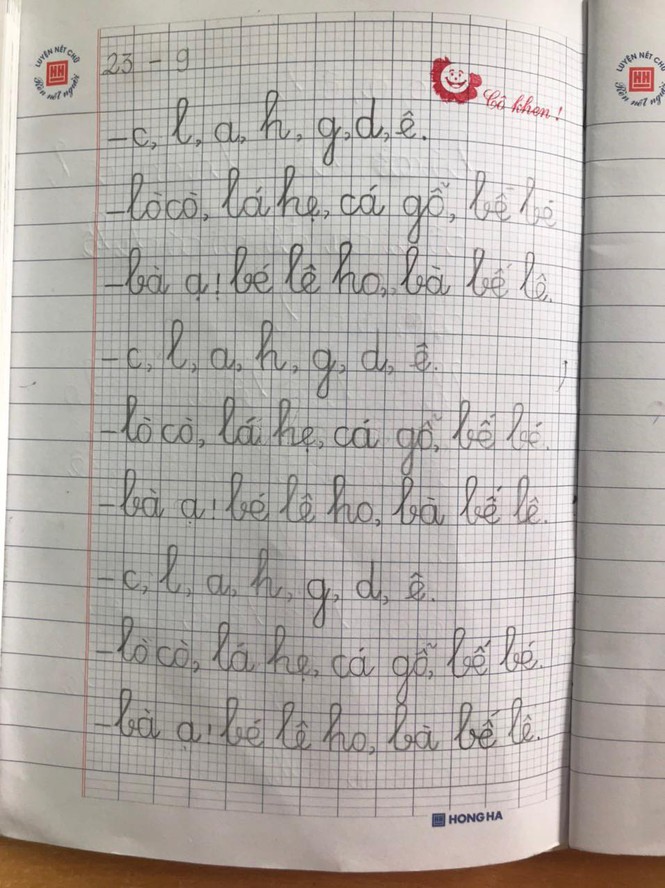 LUYỆN NÉT CHỮ
HH
Rèn nết người
LUYỆN NÉT CHỮ
HH
Rèn nết người
23 - 9
Cô khen!
- c, l, a, h, g, d, ê.
- lò cò, lá hẹ, cá gỗ, bế bé
- bà ạ! bé lê ho, bà bế lê.
- c, l, a, h, g, d, ê.
- lò cò, lá hẹ, cá gỗ, bế bé.
- bà ạ! bé lê ho, bà bế lê.
- c, l, a, h, g, d, ê.
- lò cò, lá hẹ, cá gỗ, bế bé.
- bà ạ! bé lê ho, bà bế lê.
HONG HA